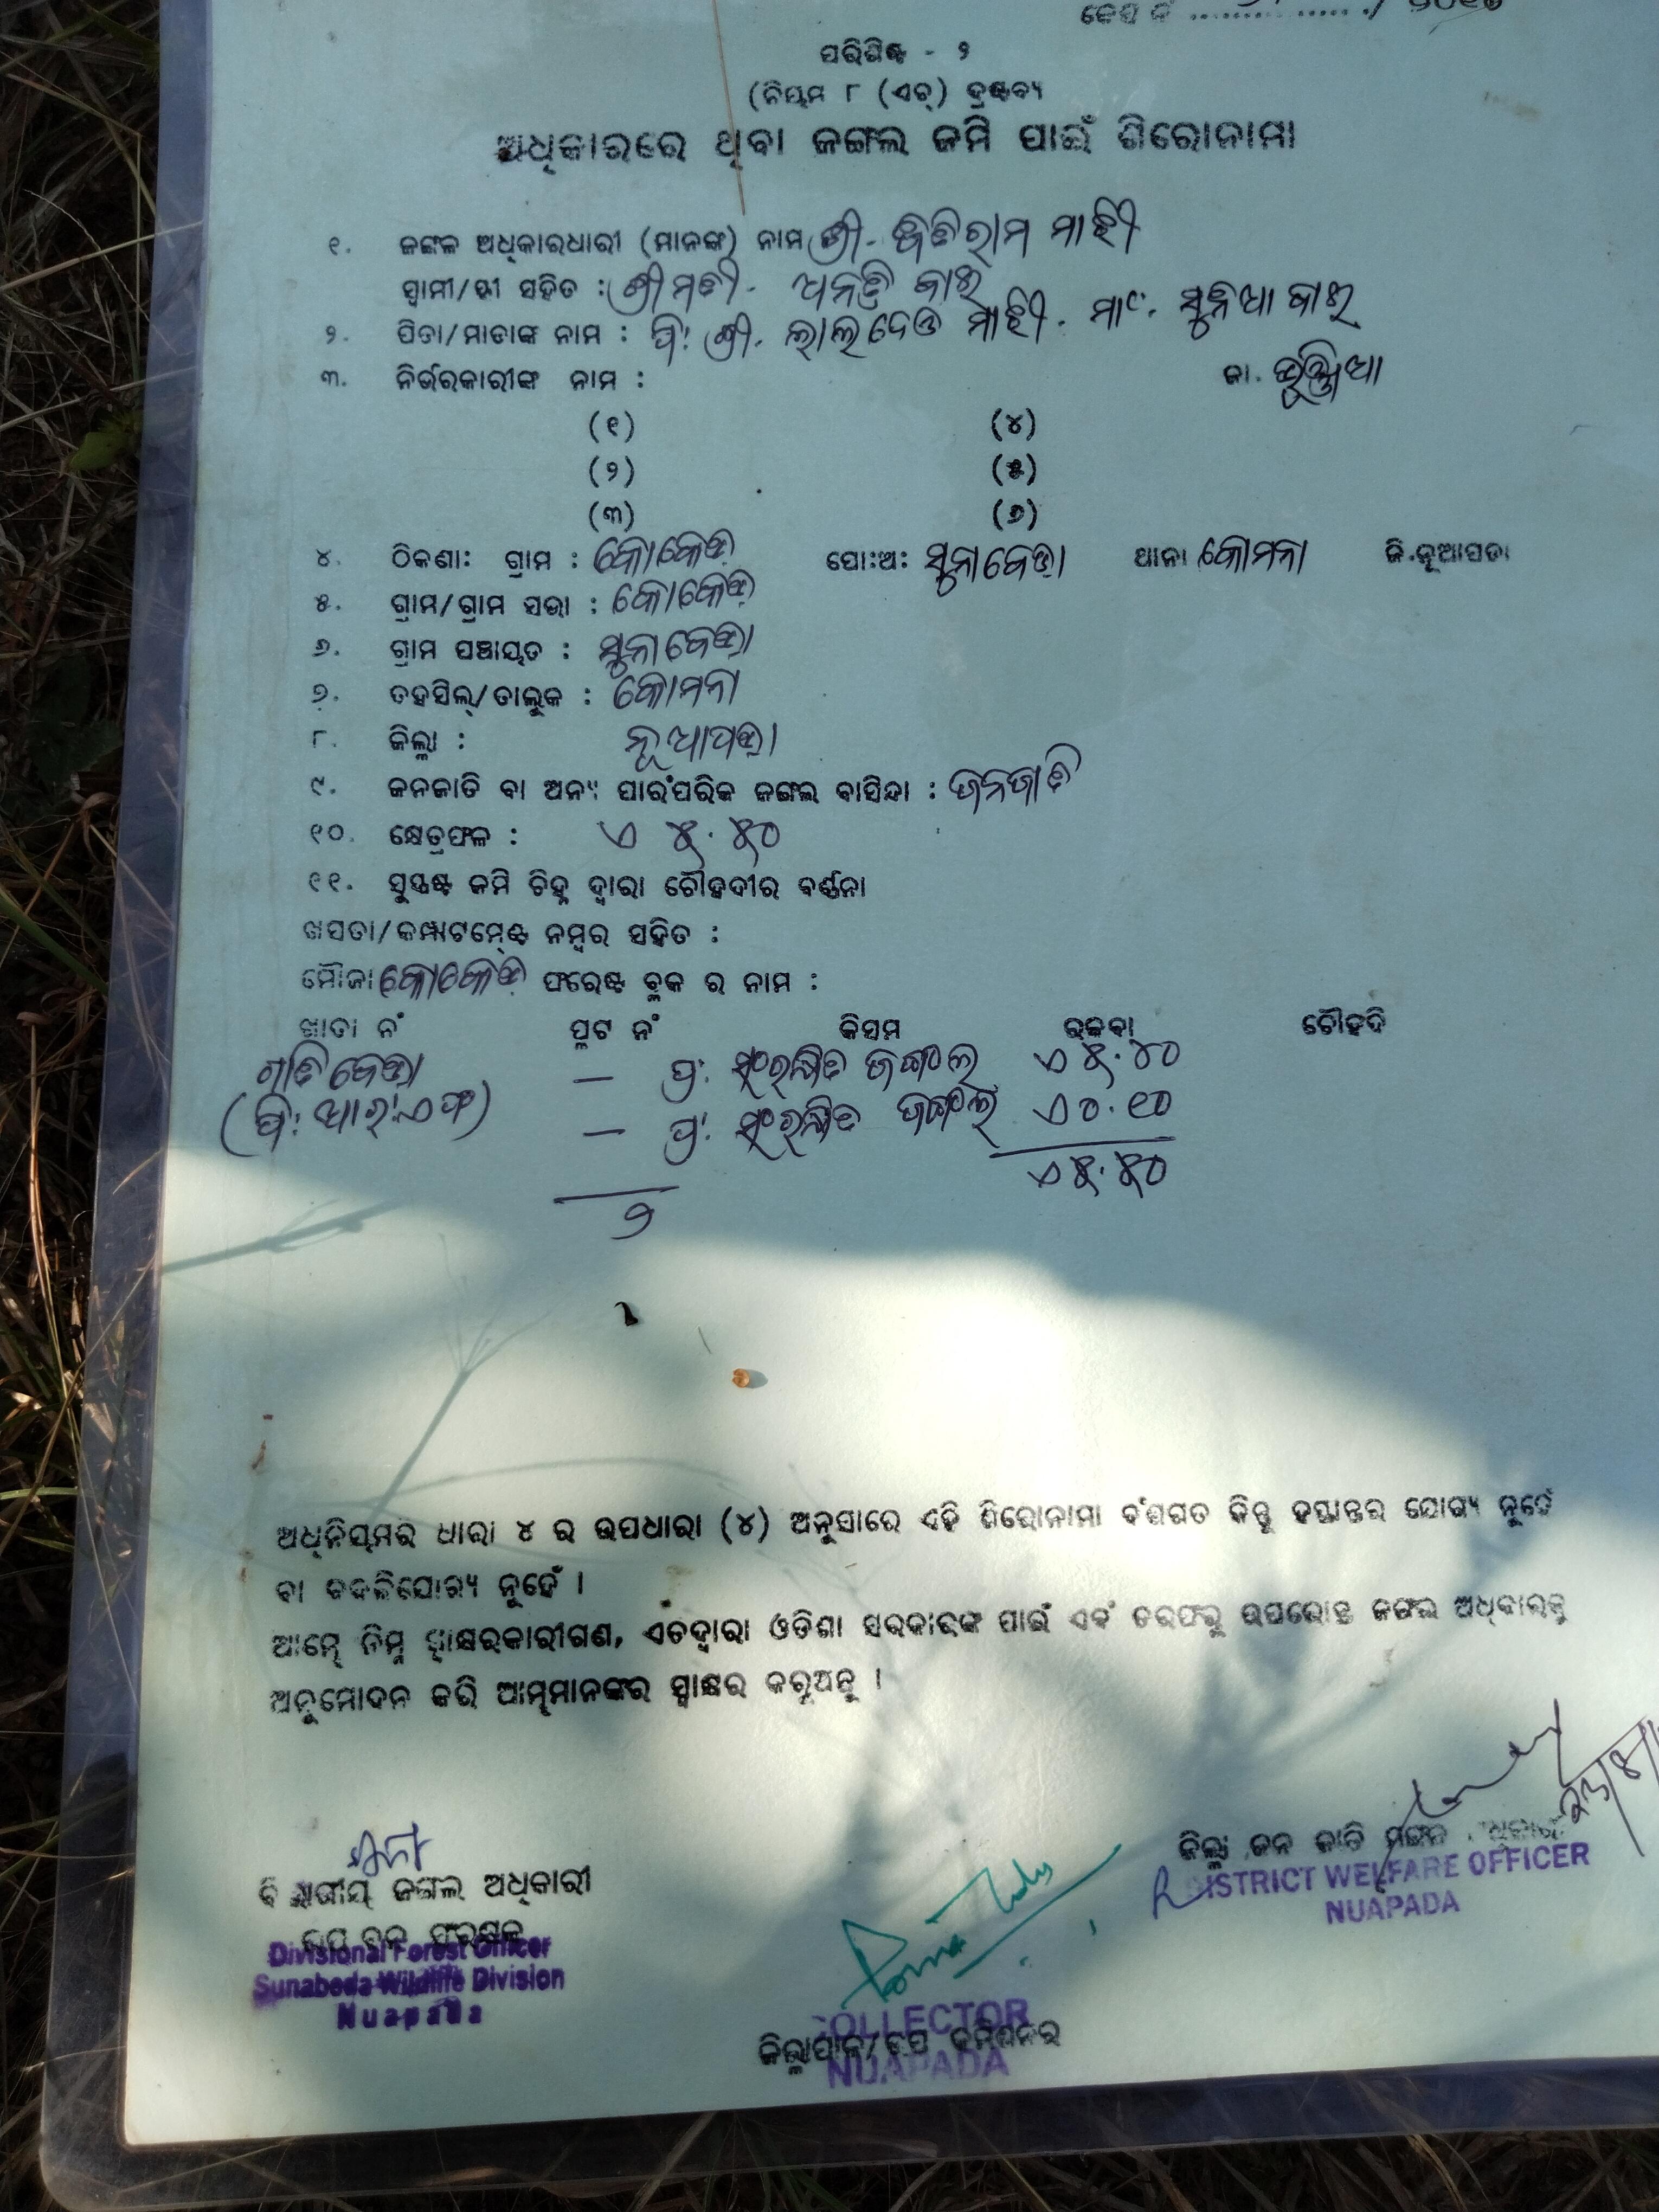 କେସ୍ ନଂ ................/
ପରିଶିଷ୍ଟ - ୨
(ନିୟମ ୮ (ଏଚ୍) ଦ୍ରଷ୍ଟବ୍ୟ
ଅଧିକାରରେ ଥିବା ଜଙ୍ଗଲ ଜମି ପାଇଁ ଶିରୋନାମା
୧. ଜଙ୍ଗଲ ଅଧିକାରଧାରୀ (ମାନଙ୍କ) ନାମ ଶ୍ରୀ. ମାଝୀ
ସ୍ଵାମୀ/ସ୍ତ୍ରୀ ସହିତ : ଶ୍ରୀମତୀ. ବାଇ
୨. ପିତା/ମାତାଙ୍କ ନାମ : ପି: ଶ୍ରୀ. ଲାଲଦେଓ ମାଝୀ. ମା: ବାଇ
୩. ନିର୍ଭରକାରୀଙ୍କ ନାମ : ଜା. ଭୁଞ୍ଜିଆ
(୧) (୪)
(୨) (୫)
(୩) (୬)
୪. ଠିକଣା: ଗ୍ରାମ : କୋକେଡ଼ା ପୋ:ଅ: ସୁନାବେଡ଼ା ଥାନା କୋମନା ଜି.ନୂଆପଡା
୫. ଗ୍ରାମ/ଗ୍ରାମ ସଭା : କୋକେଡ଼ା
୬. ଗ୍ରାମ ପଞ୍ଚାୟତ : ସୁନାବେଡ଼ା
୭. ତହସିଲ୍/ତାଲୁକ : କୋମନା
୮. ଜିଲ୍ଲା : ନୂଆପଡ଼ା
୯. ଜନଜାତି ବା ଅନ୍ୟ ପାରଂପରିକ ଜଙ୍ଗଲ ବାସିନ୍ଦା : ଜନଜାତି
୧୦. କ୍ଷେତ୍ରଫଳ : ଏ ୫.୫୦
୧୧. ସୁସ୍ପଷ୍ଟ ଜମି ଚିହ୍ନ ଦ୍ଵାରା ଚୌହଦୀର ବର୍ଣ୍ଣନା
ଖସଡା/କମ୍ପାଟମେଣ୍ଟ ନମ୍ବର ସହିତ :
ମୌଜା କୋକେଡ଼ା ଫରେଷ୍ଟ ବ୍ଲକ ର ନାମ :
ଖାତା ନଂ ପ୍ଲଟ ନଂ କିସମ ରକବା ଚୌହଦି
ପାତିବେଡ଼ା — ପ୍ର: ସଂରକ୍ଷିତ ଜଙ୍ଗଲ ଏ ୫.୪୦
(ପି: ଆର୍:ଏଫ) — ପ୍ର: ସଂରକ୍ଷିତ ଜଙ୍ଗଲ ଏ ୦.୧୦
୨ ଏ ୫.୫୦
ଅଧିନିୟମର ଧାରା ୪ ର ଉପଧାରା (୪) ଅନୁସାରେ ଏହି ଶିରୋନାମା ବଂଶଗତ କିନ୍ତୁ ହସ୍ତାନ୍ତର ଯୋଗ୍ୟ ନୁହେଁ
ବା ବଦଳିଯୋଗ୍ୟ ନୁହେଁ ।
ଆମ୍ଭେ ନିମ୍ନ ସ୍ଵାକ୍ଷରକାରୀଗଣ, ଏତଦ୍ଵାରା ଓଡିଶା ସରକାରଙ୍କ ପାଇଁ ଏବଂ ତରଫରୁ ଉପରୋକ୍ତ ଜଙ୍ଗଲ ଅଧିକାରକୁ
ଅନୁମୋଦନ କରି ଆମ୍ଭମାନଙ୍କର ସ୍ଵାକ୍ଷର କରୁଅଛୁ ।
ବିଭାଗୀୟ ଜଙ୍ଗଲ ଅଧିକାରୀ
ଉପ ବନ ସଂରକ୍ଷକ
Divisional Forest Officer
Sunabeda Wildlife Division
Nuapada
ଜିଲ୍ଲା ଜନ ଜାତି ମଙ୍ଗଳ ଅଧିକାରୀ
DISTRICT WELFARE OFFICER
NUAPADA
COLLECTOR
ଜିଲ୍ଲାପାଳ/ଉପ କମିଶନର
NUAPADA